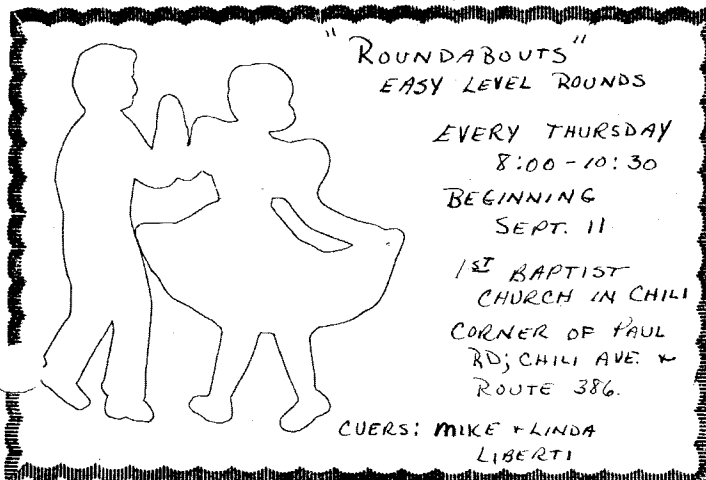 "ROUNDABOUTS"
EASY LEVEL ROUNDS
EVERY THURSDAY
8:00-10:30
BEGINNING
SEPT. 11
1ST BAPTIST
CHURCH IN CHILI
CORNER OF PAUL
RD; CHILI AVE. &
ROUTE 386.
CUERS: MIKE & LINDA
LIBERTI